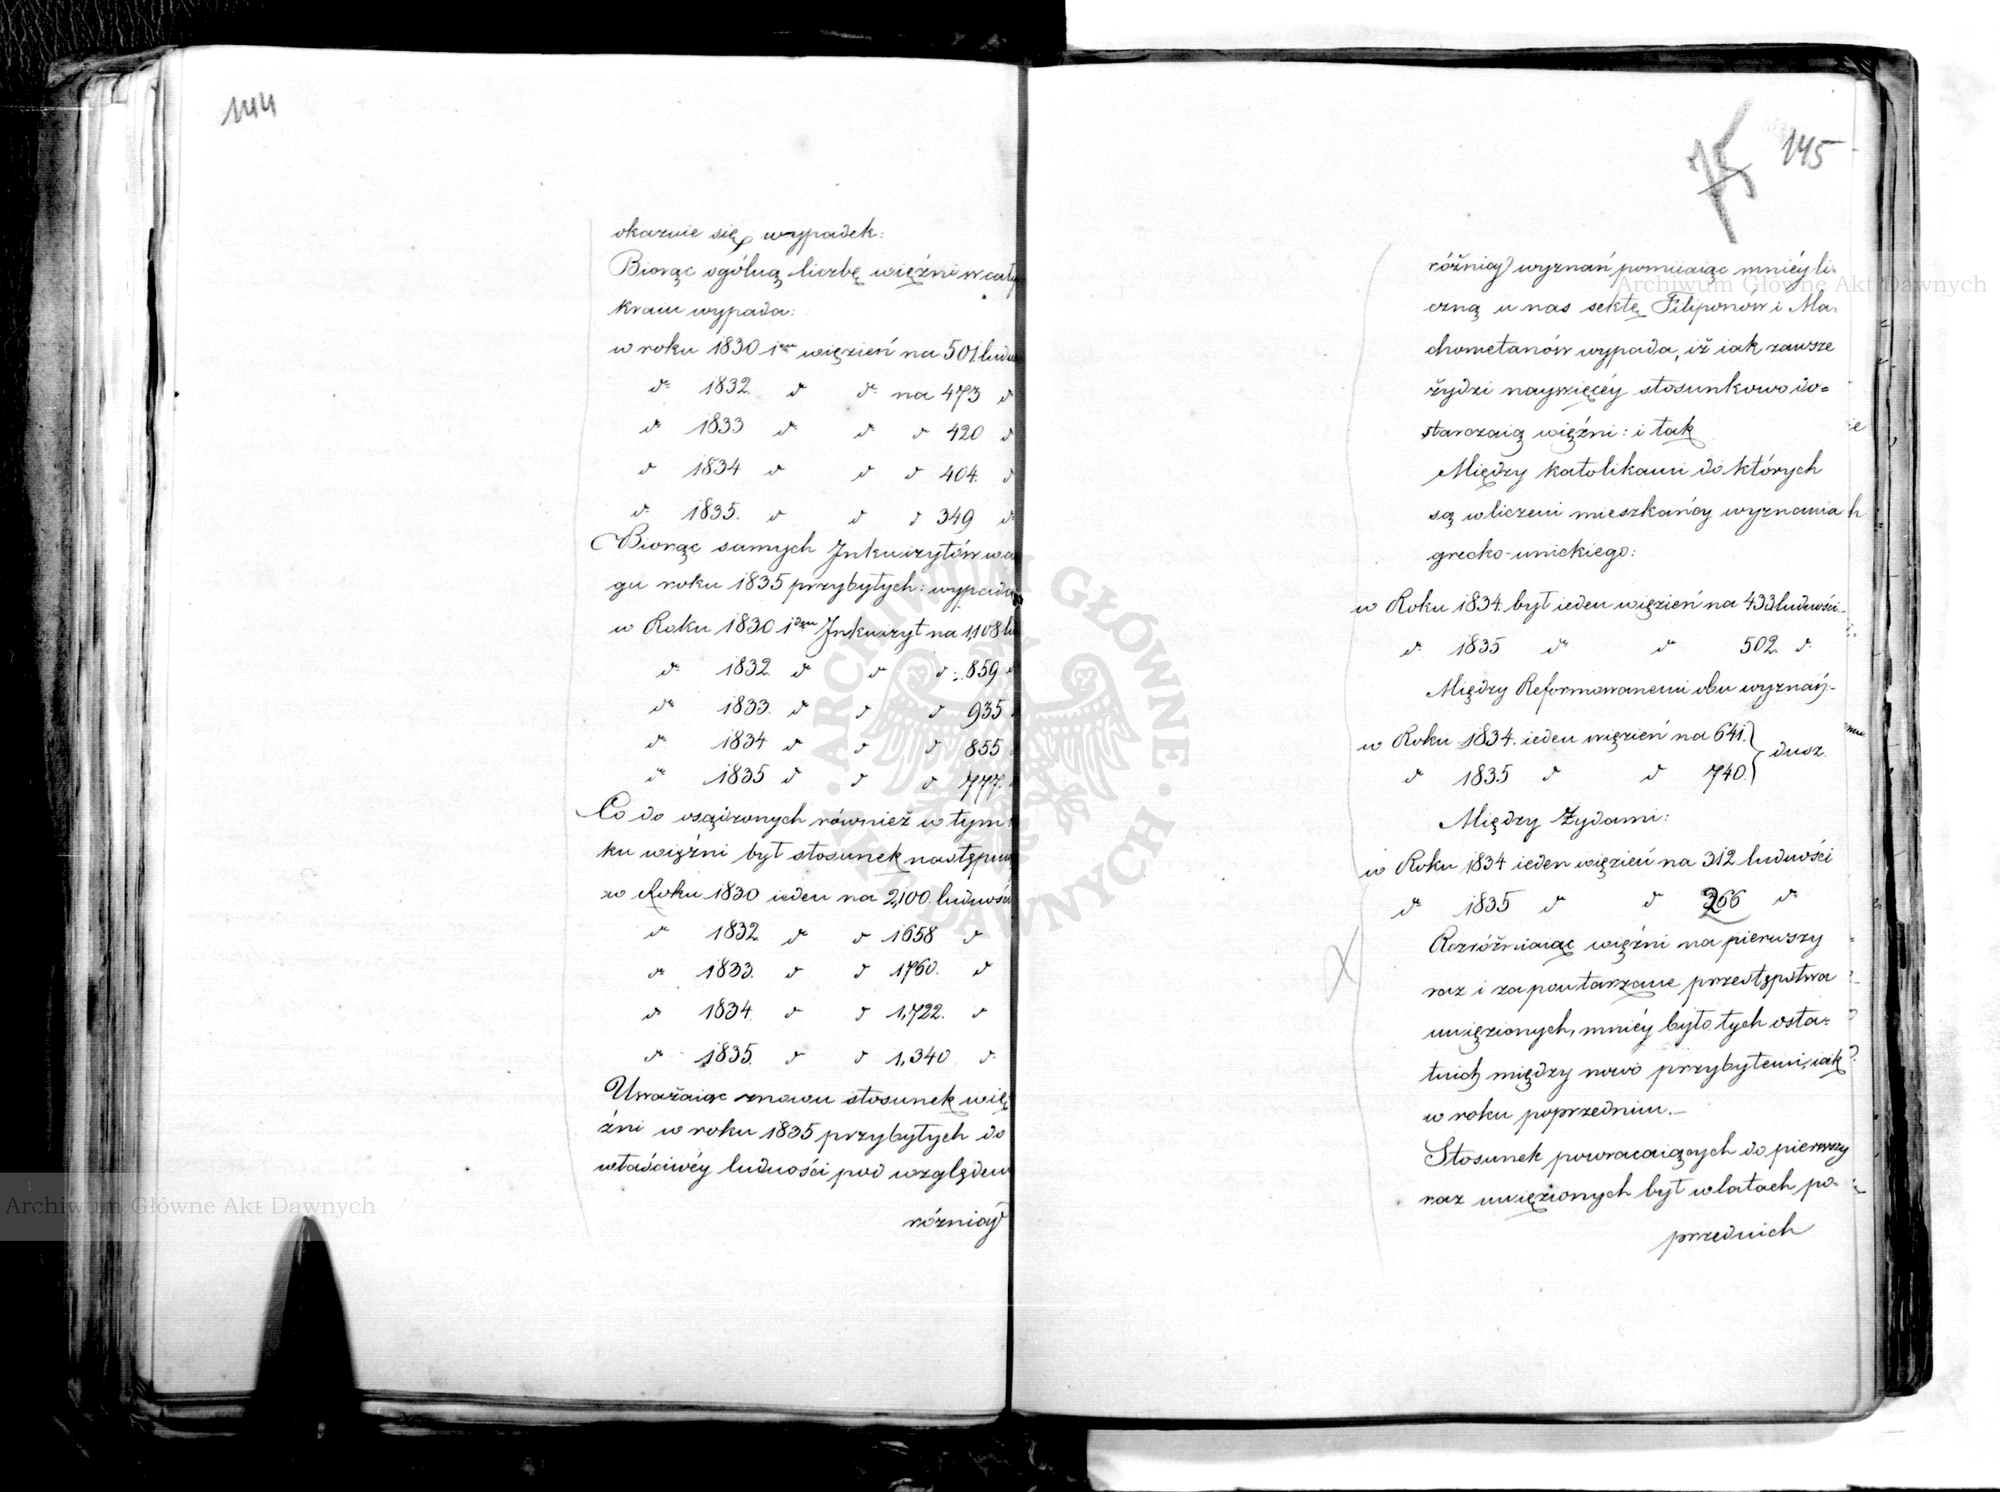 144
okazuie się wypadek:
Biorąc ogólną liczbę więźni w cały
kraiu wypada:
w roku 1830 1en więzień na 501 ludno
d° 1832 d d° na 473 d
d 1833 d d d 420 d
d 1834 d d d 404. d
d 1835. d d d 349 d
Biorąc samych Inkwizytów w cią
gu roku 1835 przybyłych: wypada
w Roku 1830 1den Inkwizyt na 1,108 lu
d° 1832 d d d 859 d
d° 1833. d d d 935
d 1834 d d d 855
d 1835 d d d 777.
Co do osądzonych również w tym
ku więźni był stosunek następui
w Roku 1830 ieden na 2,100 ludnośc
d 1832 d d 1658 d
d 1833. d d 1760. d
d 1834. d d 1,722. d
d 1835. d d 1,340 d
Uważaiąc znowu stosunek wię
źni w roku 1835 przybyłych do
właściwéy ludności pod względem
różnicy
75 145
różnicy wyznań pomiiaiąc mniéy li-
czną u nas sektę Filiponów i Ma-
chometanów wypada, iż iak zawsze
żydzi naywięcéy stosunkowo do=
starczaią więźni: i tak
Między katolikami do których
są wliczeni mieszkańcy wyznania
grecko-unickiego:
w Roku 1834. był ieden więzień na 433 ludności
d. 1835 d d 502. d.
Między Reformowanemi obu wyznań
w Roku 1834. ieden więzień na 641. } dusz.
d 1835 d d 740. }
Między Żydami:
w Roku 1834 ieden więzień na 312 ludności
d 1835 d d 366 d
Rozróżniaiąc więźni na pierwszy
raz i za powtarzane przestępstwa
uwięzionych, mniéy było tych osta-
tnich między nowo przybyłemi, iak
w roku poprzednim.—
Stosunek powracaiących do pierwszy
raz uwięzionych był w latach po-
przednich
Archiwum Główne Akt Dawnych
Archiwum Główne Akt Dawnych
ARCHIWUM GŁÓWNE AKT DAWNYCH